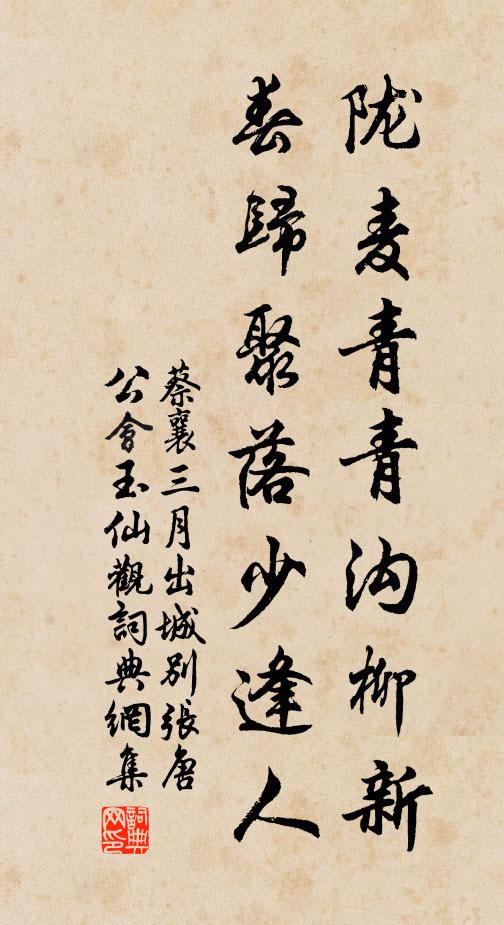 陇麦青青沟柳新
春歸聚落少逢人
蔡襄三月出城别張唐
公會玉仙觀詞典網集
詞典网印